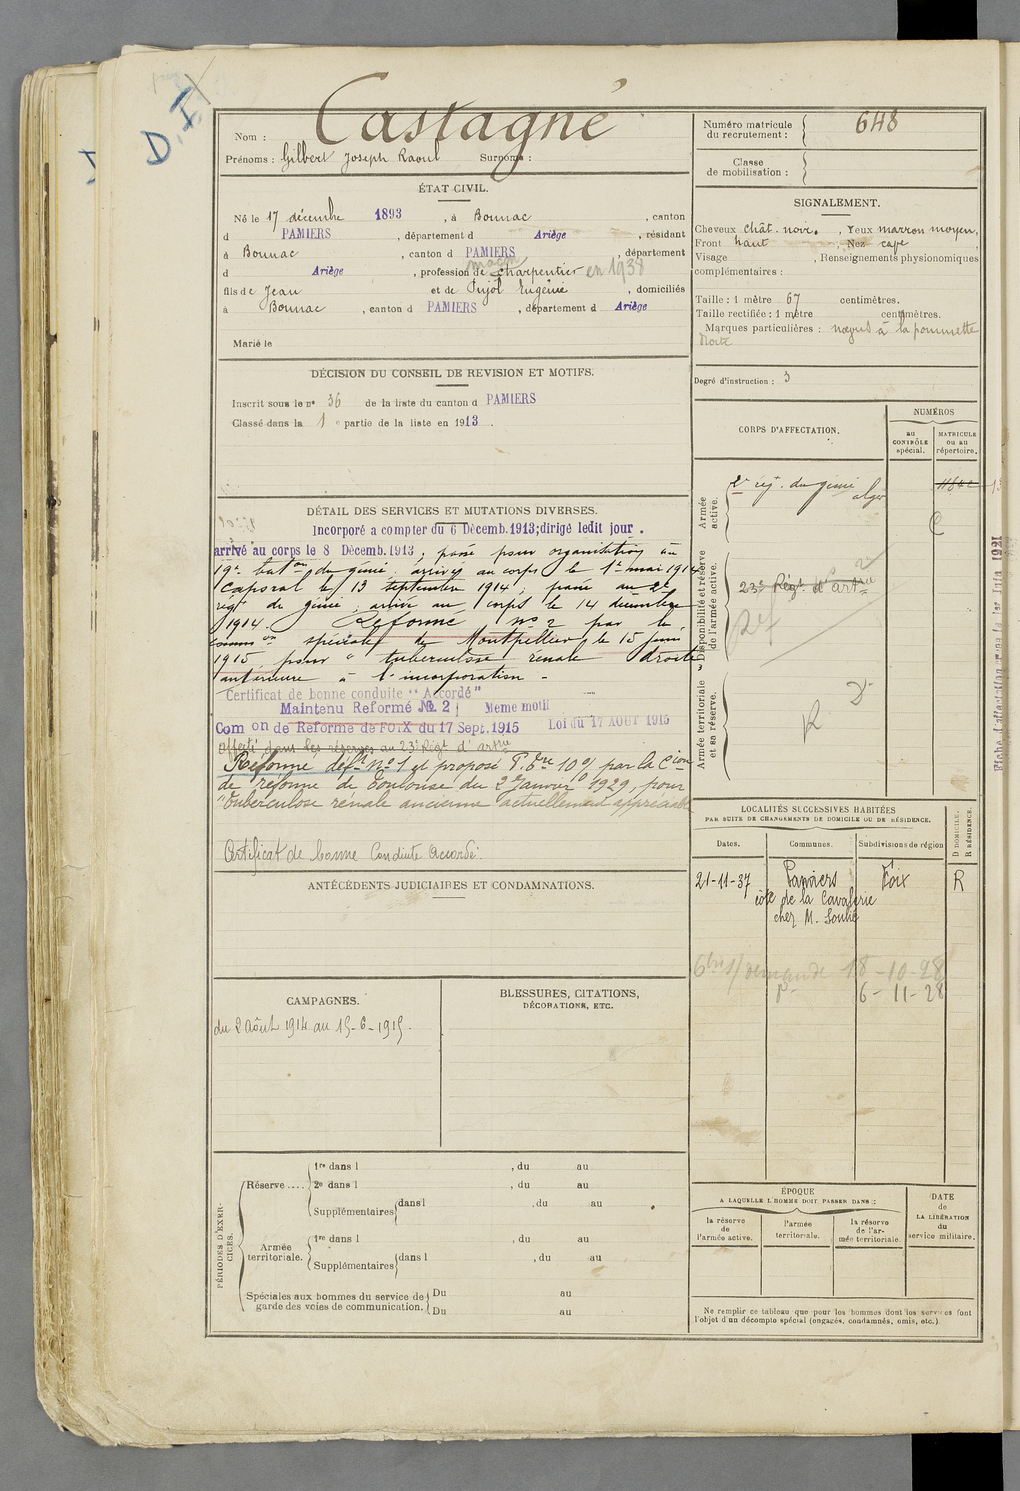 D.F.
Castagné
Nom :
Prénoms : Gilbert Joseph Raoul Surnoms :
ÉTAT CIVIL.
Né le 17 décembre 1893, à Bonnac, canton
d PAMIERS, département d Ariège, résidant
à Bonnac, canton d PAMIERS, département
maçon
d Ariège, profession de charpentier en 1938
fils de Jean et de Pujol Eugénie, domiciliés
à Bonnac, canton d PAMIERS, département d Ariège
Marié le
DÉCISION DU CONSEIL DE REVISION ET MOTIFS.
Inscrit sous le nº 36 de la liste du canton d PAMIERS
Classé dans la 1 e partie de la liste en 1913.
DÉTAIL DES SERVICES ET MUTATIONS DIVERSES.
Incorporé a compter du 6 Décemb.1913;dirigé ledit jour.
arrivé au corps le 8 Décemb.1913; passé pour organisation au
19e bat on du génie. arrivé au corps le 1er mai 1914
Caporal le 13 septembre 1914, passé au 2e
régt du génie, arrivé au corps le 14 décembre
1914. Réformé nº 2 par la
comm on spéciale de Montpellier, le 15 juin
1915, pour " tuberculose rénale droite
antérieure à l'incorporation -
Certificat de bonne conduite "Accordé"
Maintenu Reformé Nº 2 Meme motif
Com on de Reforme de FOIX du 17 Sept.1915 Loi du 17 AOUT 1915
affecté dans les réserves au 23e Régt d'artrie
Réformé déf. Nº 1 et proposé P. 10 % par la Cion
de réforme de Toulouse du 2 Janvier 1929, pour
"Tuberculose rénale ancienne actuellement appréciable
Certificat de bonne Conduite Accordé.
ANTÉCÉDENTS JUDICIAIRES ET CONDAMNATIONS.
CAMPAGNES.
du 2 Août 1914 au 15-6-1915.
BLESSURES, CITATIONS,
DÉCORATIONS, ETC.
PÉRIODES D'EXERCICES.
Réserve....
1re dans l , du au
2e dans l , du au
Supplémentaires dans l , du au
Armée territoriale.
1re dans l , du au
Supplémentaires dans l , du au
Spéciales aux hommes du service de garde des voies de communication.
Du au
Du au
Numéro matricule du recrutement : 648
Classe de mobilisation :
SIGNALEMENT.
Cheveux chât. noir., Yeux marron moyen,
Front haut, Nez cave
Visage , Renseignements physionomiques
complémentaires :
Taille : 1 mètre 67 centimètres.
Taille rectifiée : 1 mètre centimètres.
Marques particulières : nævus à la pommette
droite
Degré d'instruction : 3
CORPS D'AFFECTATION.
NUMÉROS
au CONTRÔLE spécial.
MATRICULE ou au répertoire.
Armée active.
2e régt du génie
alger
Disponibilité et réserve de l'armée active.
23e Régt d'artrie
Réf
Armée territoriale et sa réserve.
R D
LOCALITÉS SUCCESSIVES HABITÉES
PAR SUITE DE CHANGEMENTS DE DOMICILE OU DE RÉSIDENCE.
D DOMICILE.
R RÉSIDENCE.
Dates. Communes. Subdivisions de région
21-11-37 Pamiers Foix R
côte de la Cavalerie
chez M. Soulié
demande 18-10-28
6-11-28
ÉPOQUE
A LAQUELLE L'HOMME DOIT PASSER DANS :
la réserve de l'armée active.
l'armée territoriale.
la réserve de l'armée territoriale.
DATE de LA LIBÉRATION du service militaire.
Ne remplir ce tableau que pour les hommes dont les services font
l'objet d'un décompte spécial (engagés, condamnés, omis, etc.)